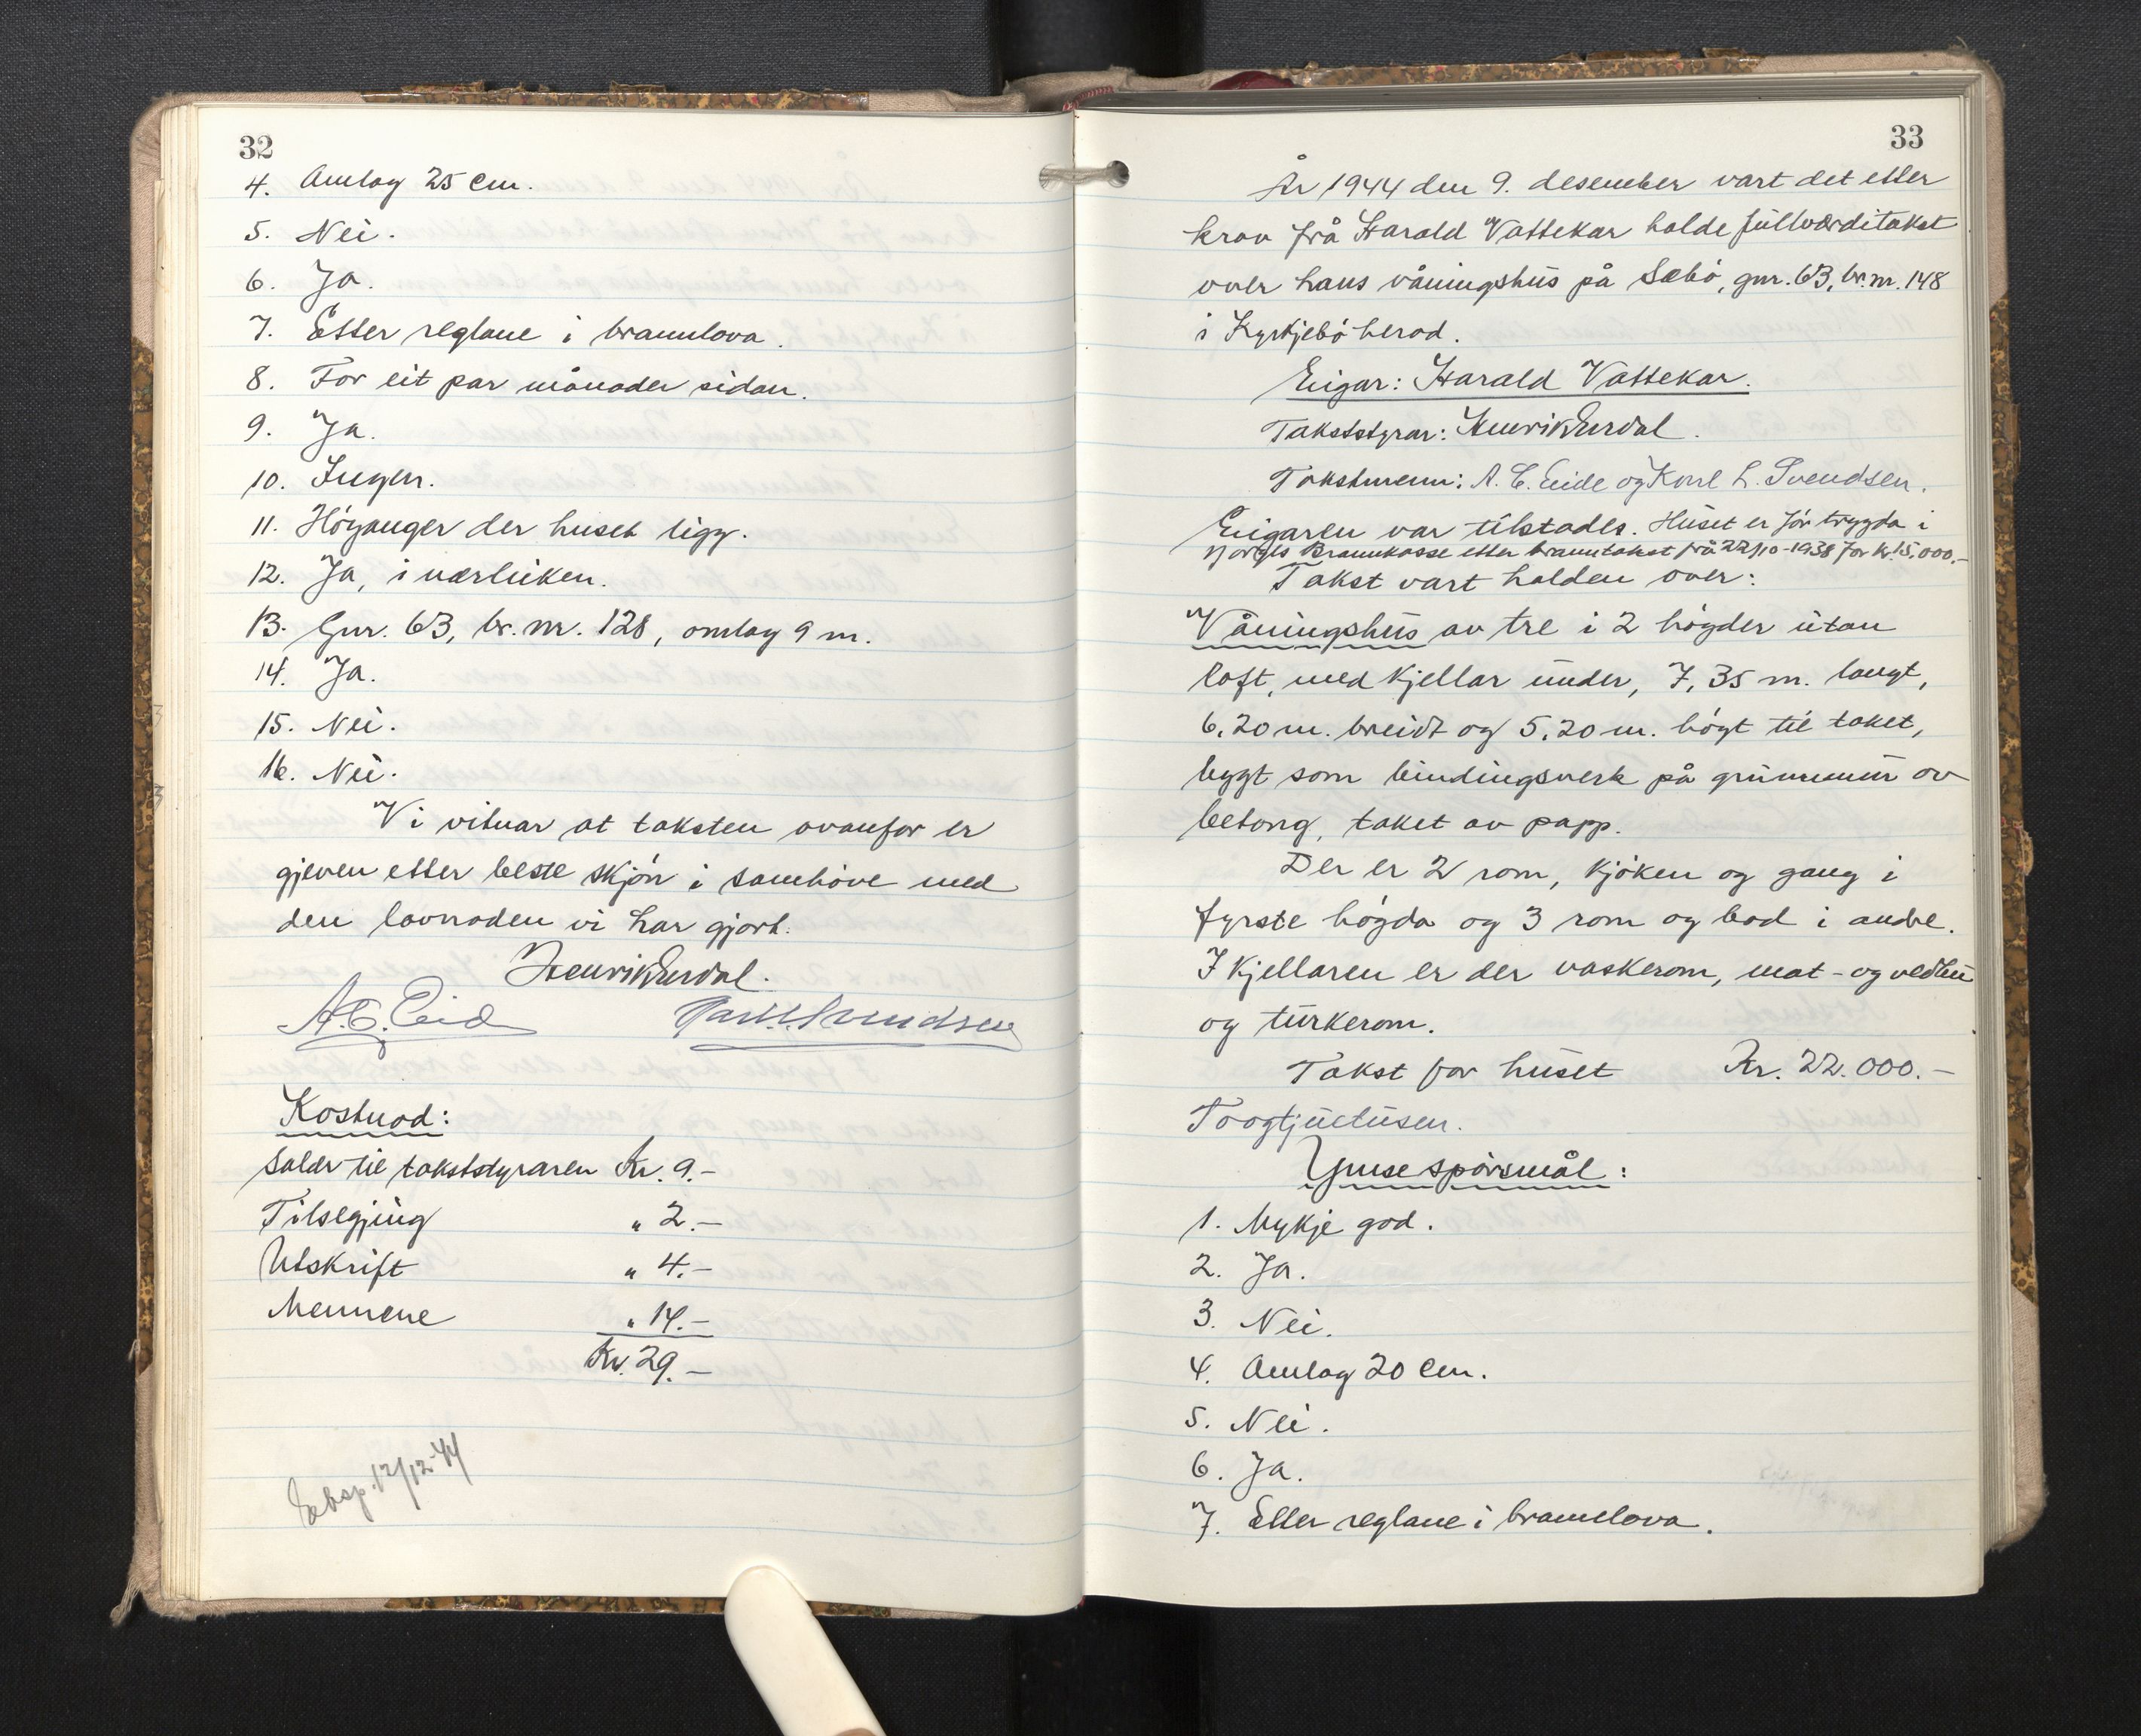 32
4. Omlag 25 cm.
5. Nei.
6. Ja.
7. Etter reglane i brannlova.
8. For eit par månader sidan.
9. Ja.
10. Ingen.
11. Höyanger der huset ligg.
12. Ja, i verliken.
13. Gnr. 63, br.nr. 128, omlag 9 m.
14. Ja.
15. Nei.
16. Nei.
Vi vitnar at taksten ovanfor er
gjeven etter beste skjön i samhöve med
den lovnaden vi har gjort.
Henrik Erdal.
A.C. Eide Karl L. Svendsen
Kostnad:
Salær til takststyraren Kr. 9.-
Tilsegjing " 2.-
Utskrift " 4.-
Mennene " 14.-
Kr. 29.-
Eksp. 12/12-44
33
År 1944 den 9. desember vart det etter
krav frå Harald Vattekar halde fullverditakst
over hans våningshus på Sæbö, gnr. 63, br.nr. 148
i Kyrkjebö herad.
Eigar: Harald Vattekar.
Takststyrar: Henrik Erdal.
Takstmenn: A. C. Eide og Karl L. Svendsen.
Eigaren var tilstades. Huset er för trygda i
Norges Brannkasse etter branntakst frå 22/10-1938 for kr. 15.000.-
Takst vart halden over:
Våningshus av tre i 2 högder utan
loft, med kjellar under, 7,35 m. langt,
6,20 m. breidt og 5,20 m. högt til taket,
bygt som bindingsverk på grunnmur av
betong, taket av papp.
Der er 2 rom, kjöken og gang i
fyrste högda og 3 rom og bad i andre.
I kjellaren er der vaskerom, mat- og vedbu
og turkerom.
Takst for huset Kr. 22.000.-
Toogtjuetusen.
Ymse spörsmål:
1. Mykje god.
2. Ja.
3. Nei.
4. Omlag 20 cm.
5. Nei.
6. Ja.
7. Etter reglane i brannlova.